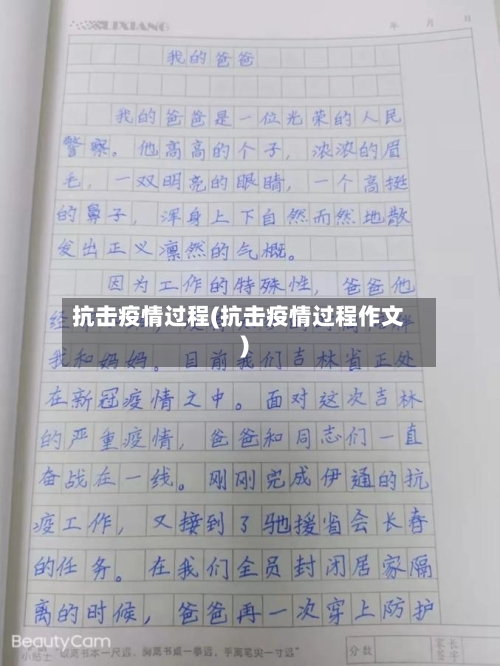 LIXIANG
年 月 日
我的爸爸
我的爸爸是一位光荣的人民
警察。他高高的个子，浓浓的眉
毛，一双明亮的眼睛，一个高挺
的鼻子，浑身上下自然而然地散
发出正义凛然的气概。
因为工作的特殊性，爸爸他
抗击疫情过程(抗击疫情过程作文
)
经
伴
我和妈妈。目前我们吉林省正处
在新冠疫情之中。面对这次吉林
的严重疫情，爸爸和同志们一直
奋战在一线。刚刚完成伊通的抗
疫工作，又接到了驰援省会长春
的任务。在我们全员封闭居家隔
离的时候，爸爸再一次穿上防护
BeautyCam
小贴士 眼离书本一尺远，胸离书桌一拳远，手离笔尖一寸远
分数
家长签字